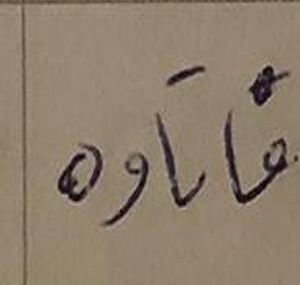 قاتاوه